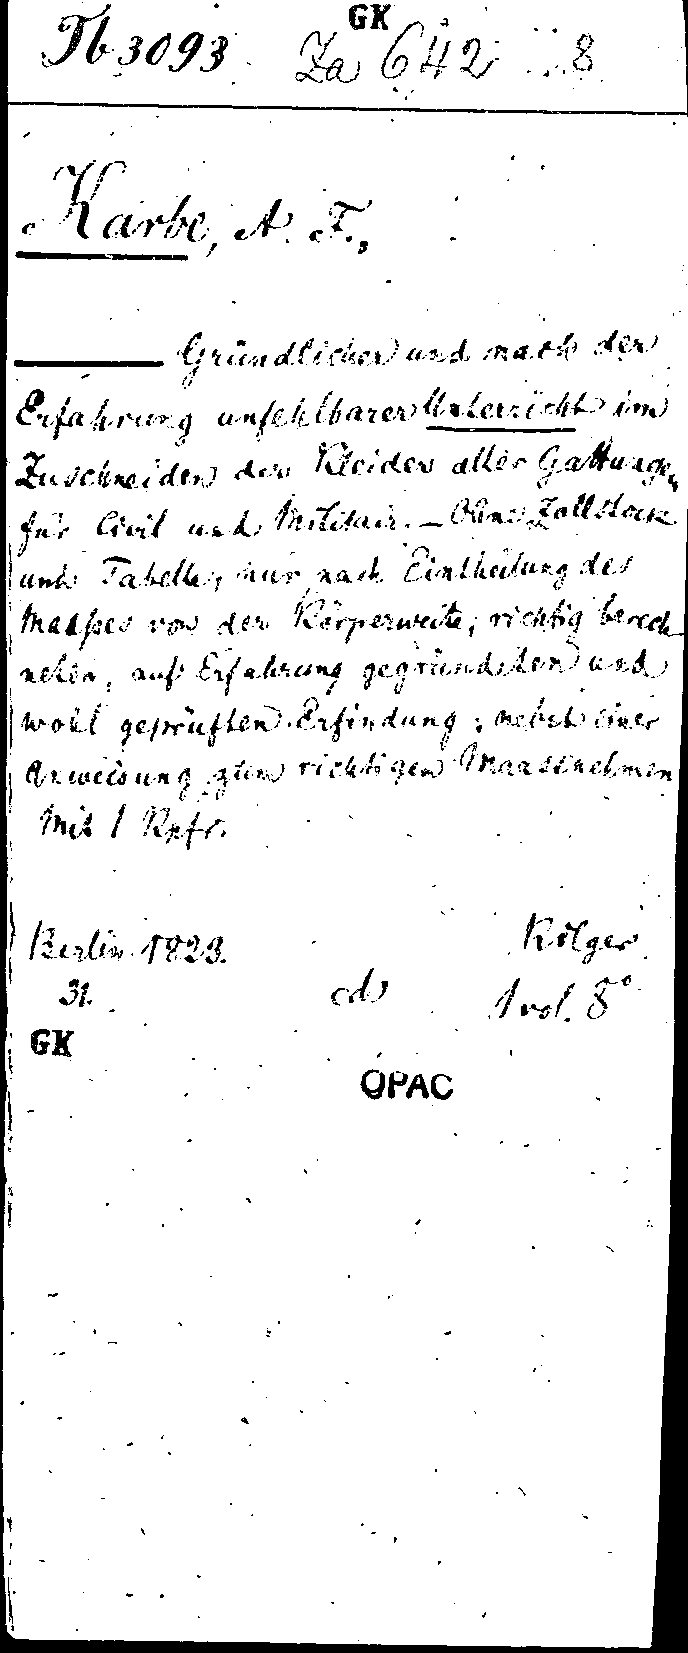 GK
Tb 3093 Za 642 8
Karbe, A. F.,
Gründlicher und nach der
Erfahrung unfehlbarer Unterricht im
Zuschneiden der Kleider aller Gattungen
für Civil und Militair. – Ohne Zollstock
und Tabelle, nur nach Eintheilung des
Maaßes von der Körperweite, richtig berech
neten, auf Erfahrung gegründeten und
wohl geprüften Erfindung; nebst einer
Anweisung zum richtigen Maassnehmen
Mit 1 Kpfr.
Berlin 1823.
31. 1 vol. 8°
GK
OPAC